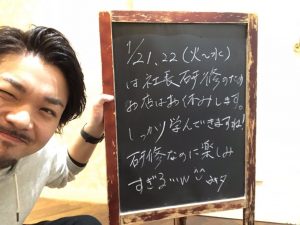 1/21.22(火~水)
は社長研修のため
お店はお休みします。
しっかり学んできますね!
研修なのに楽しみ
すぎる…w ^^